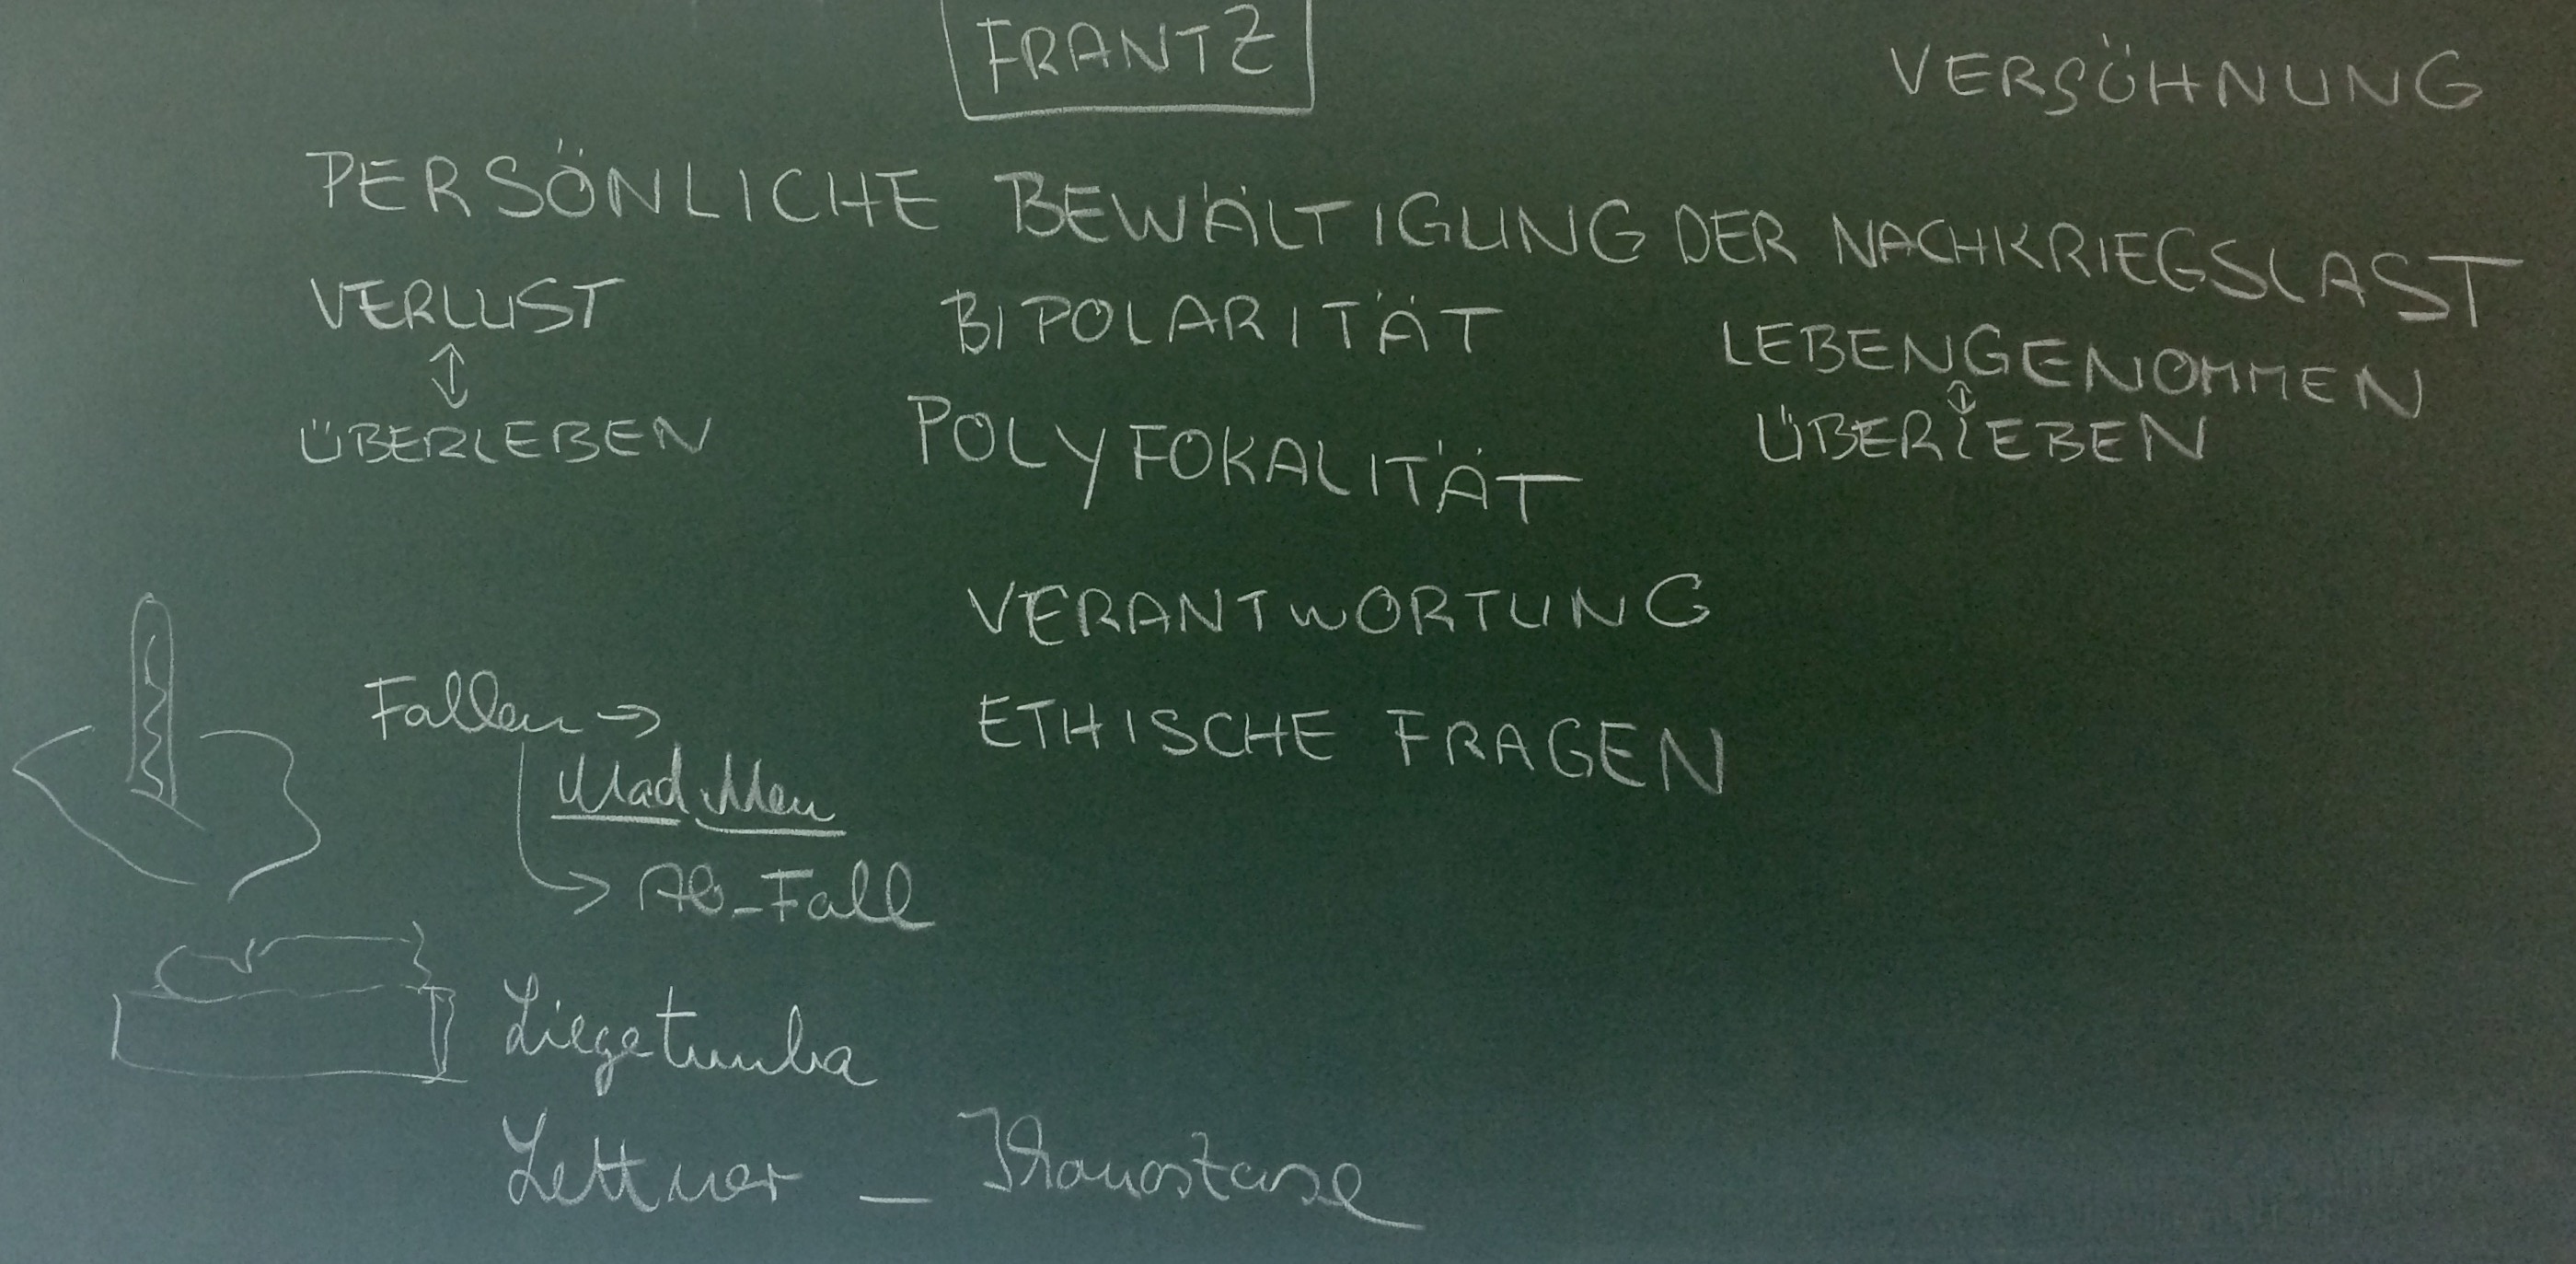 FRANTZ
VERSÖHNUNG
PERSÖNLICHE BEWÄLTIGUNG DER NACHKRIEGSLAST
VERLUST
↕
ÜBERLEBEN
BIPOLARITÄT
POLYFOKALITÄT
LEBENGENOMMEN
↕
ÜBERLEBEN
VERANTWORTUNG
ETHISCHE FRAGEN
Fallen →
Mad Men
→ Ab_Fall
Liegetumba
Lettner _ Ikonostase